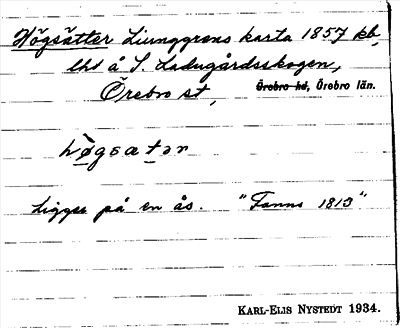 Högsätter Ljunggrens karta 1857 kb,
lht å S. Ladugårdsskogen,
Örebro st, Örebro hd, Örebro län.
högsatər
Ligger på en ås. "Fanns 1813"
KARL-ELIS NYSTEDT 1934.